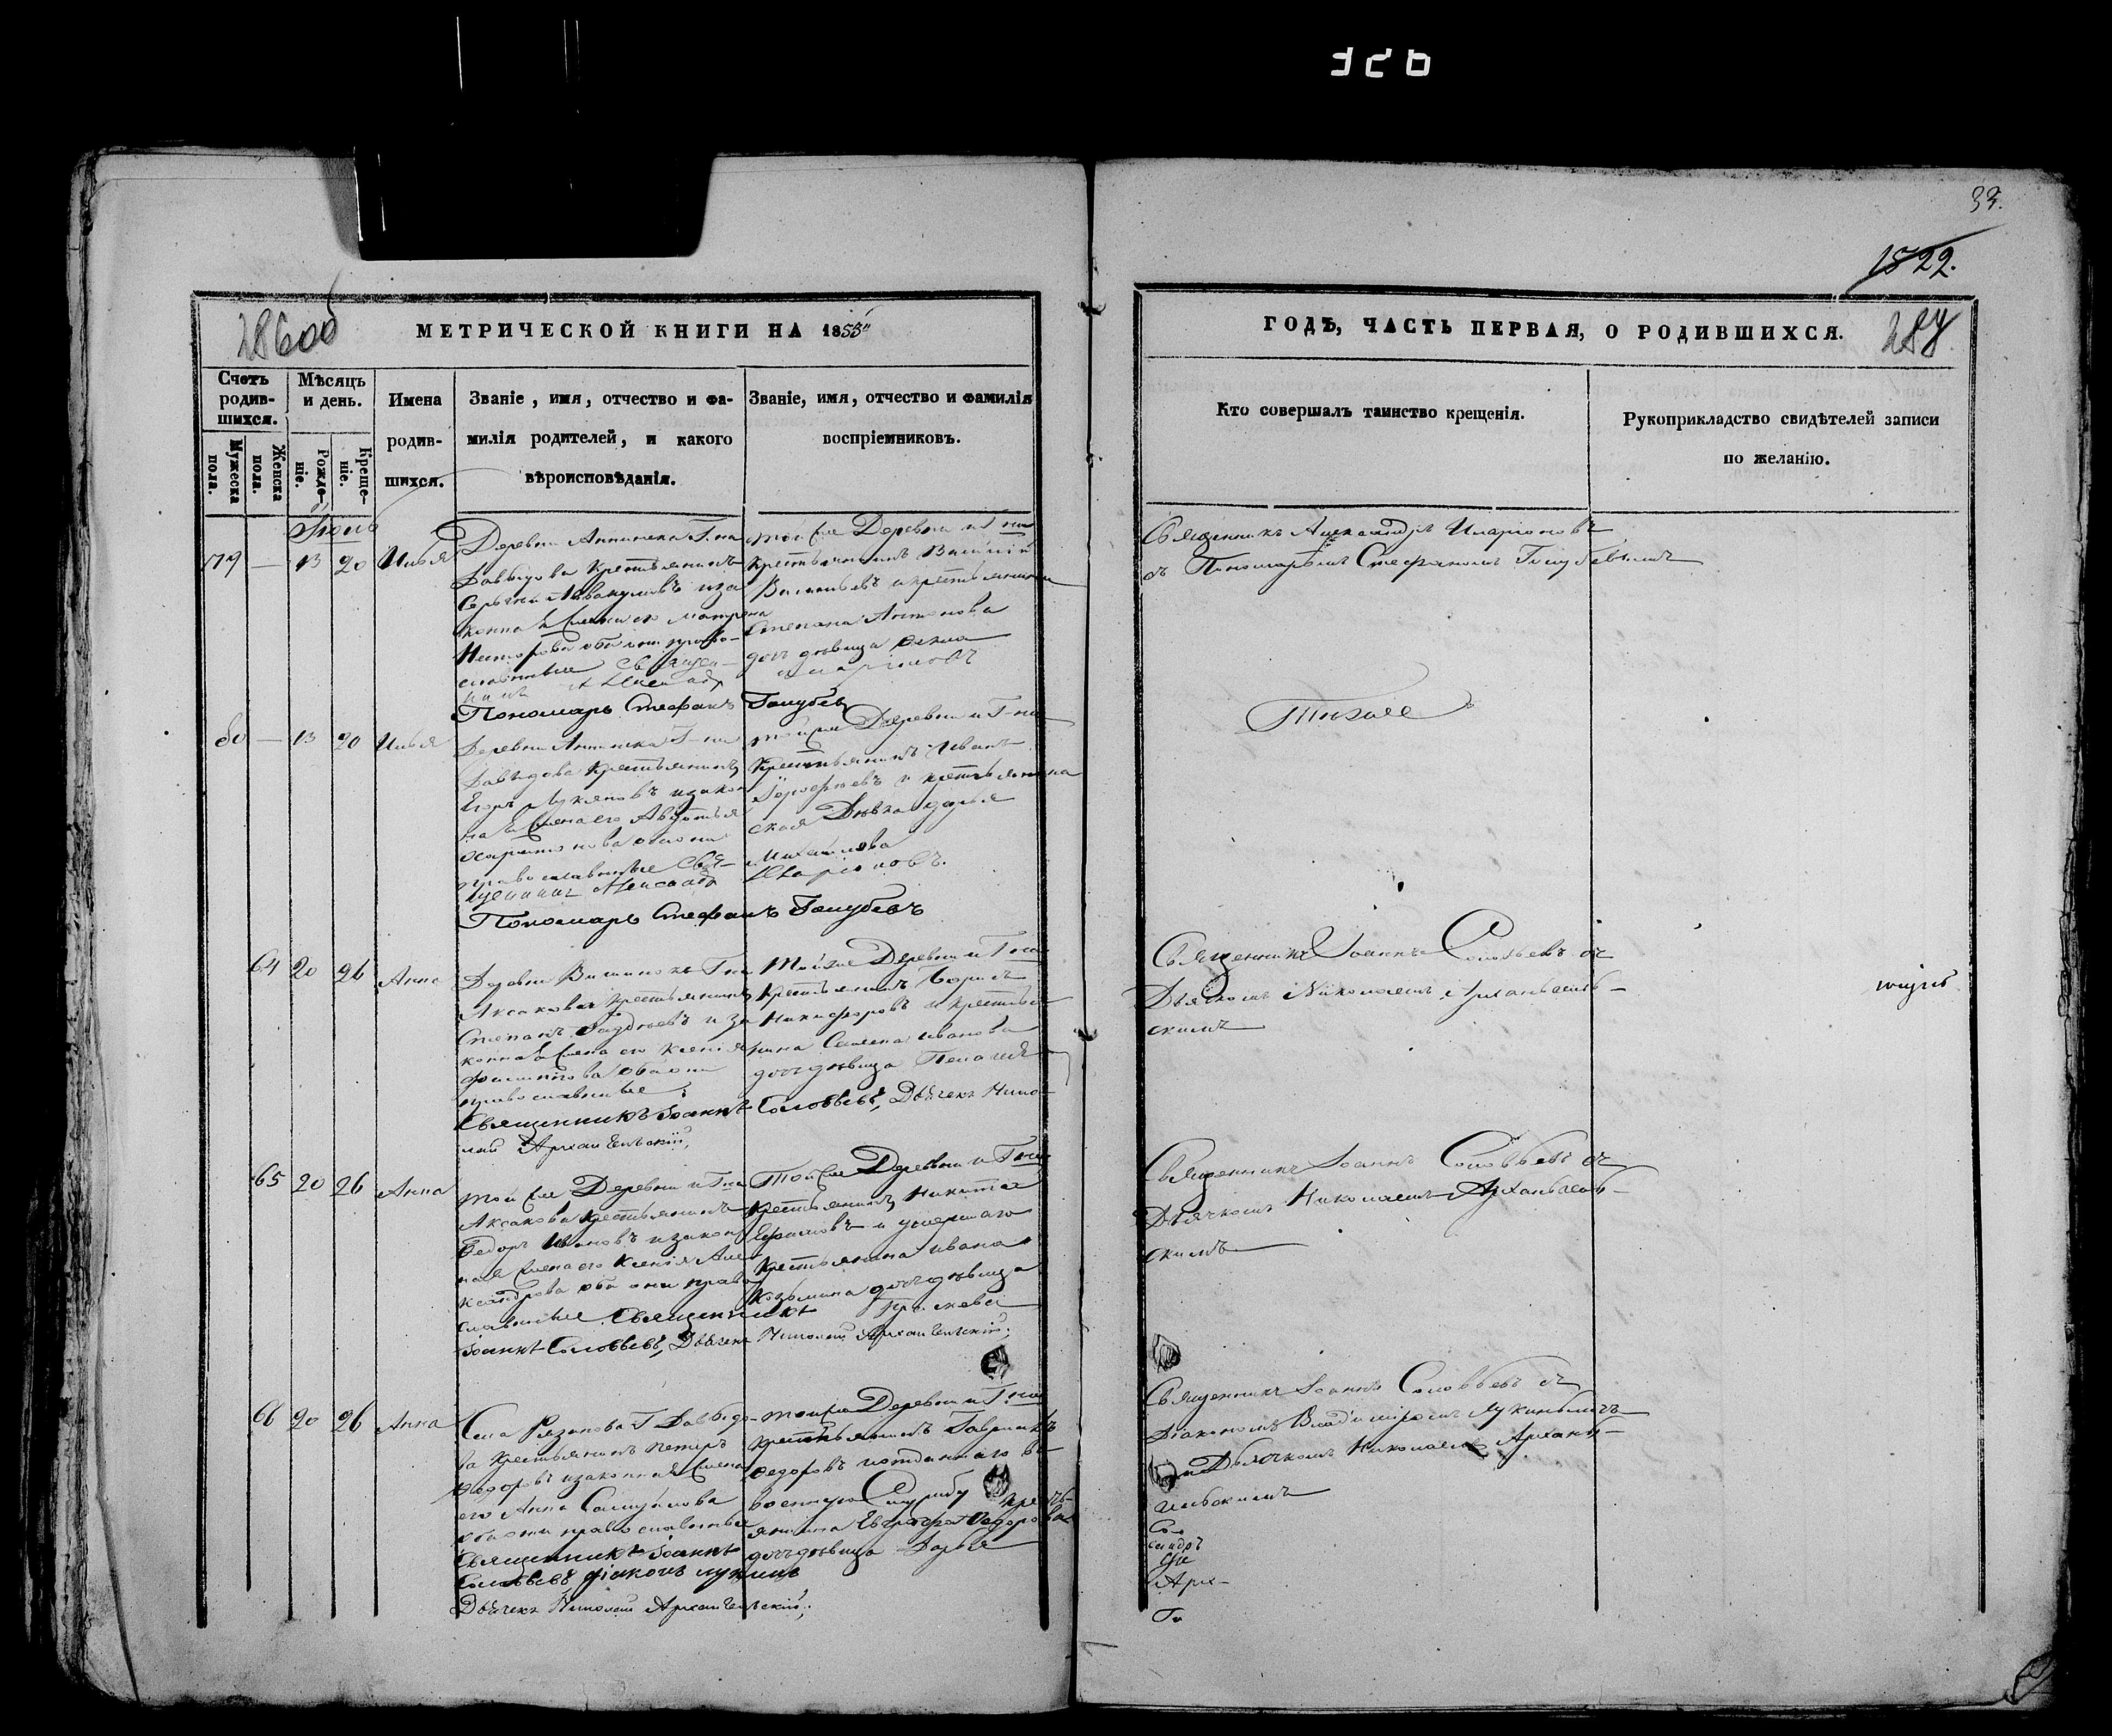 326
33.
1822.
286об
МЕТРИЧЕСКОЙ КНИГИ НА 1853
ГОДЪ, ЧАСТЬ ПЕРВАЯ, О РОДИВШИХСЯ.
287
Счетъ родив-шихся.
Мужеска пола.
Женска пола.
Мѣсяцъ и день.
Рожде-ніе.
Креще-ніе.
Имена родив-шихся.
Званіе, имя, отчество и фа-
милія родителей, и какого
вѣроисповѣданія.
Званіе, имя, отчество и фамилія
воспріемниковъ.
Кто совершалъ таинство крещенія.
Рукоприкладство свидѣтелей записи
по желанію.
Іюль
79 — 13 20 Илья
Деревни Г-на
Давыдова крестьянинъ
Аввакумовъ и за
конная жена его Матрона
Несторова оба они право-
славные Священ-
никъ Александр
Пономарь Стефанъ Голубев
той же Деревни и Г-на
крестьянинъ Василій
Васильевъ и крестьянина
Степана Антонова
дочь дѣвица
Иларіоновъ
Священникъ Александръ Иларіоновъ
съ Пономаремъ Стефаномъ Голубевымъ
80 — 13 20 Илья
Деревни Г-на
Давыдова крестьянинъ
Егоръ Лукяновъ и закон
ная жена его Авдотья
Харитонова они
православные Свя-
щенникъ Александр
Пономарь Стефанъ Голубевъ
той же Деревни и Г-на
крестьянинъ Иванъ
и крестьянска
ская Дѣвка Дарья
Михайлова
Иларіоновъ.
Тиже
64 20 26 Анна
Деревни Г-на
Аксакова крестьянинъ
Степанъ и за
конная жена его Ксенія
Филиппова оба они
православные
Священникъ Іоаннъ Соловьевъ, Дьячекъ Нико-
лай Архангельскій,
Той же Деревни и Г-на
крестьянинъ Борисъ
Никифоровъ и крестья
нина Семена Иванова
дочь дѣвица Пелагея
Священникъ Іоаннъ Соловьевъ съ
Дьячкомъ Николаемъ Архангель-
скимъ
65 20 26 Анна
Той же Деревни и Г-на
Аксакова крестьянинъ
Федоръ Ивановъ и закон
ная жена его Ксенія Але
ксандрова оба они право
славные Священникъ
Іоаннъ Соловьевъ, Дьячекъ Николай Архангельскій,
Той же Деревни и Г-на
крестьянинъ Никита
Ефимовъ и умершаго
крестьянина Ивана
Козьмина дочь дѣвица
Священникъ Іоаннъ Соловьевъ съ
Дьячкомъ Николаемъ Архангель-
скимъ
66 20 26 Анна
Села Рязанова Г Давыдо-
ва крестьянинъ Петръ
Федоровъ и законная жена
его Анна Самуилова
оба они православные
Священникъ Іоаннъ
Соловьевъ діаконъ Лукинъ
Дьячекъ Николай Архангельскій,
той же Деревни и Г-на
крестьянинъ Гавриилъ
Федоровъ и отданнаго въ
военную Службу кресть-
янина Евграфа Федорова
дочь дѣвица Дарья
Священникъ Іоаннъ Соловьевъ съ
Діакономъ Владиміромъ Лукинымъ
и Дьячкомъ Николаемъ Архан-
гельскимъ